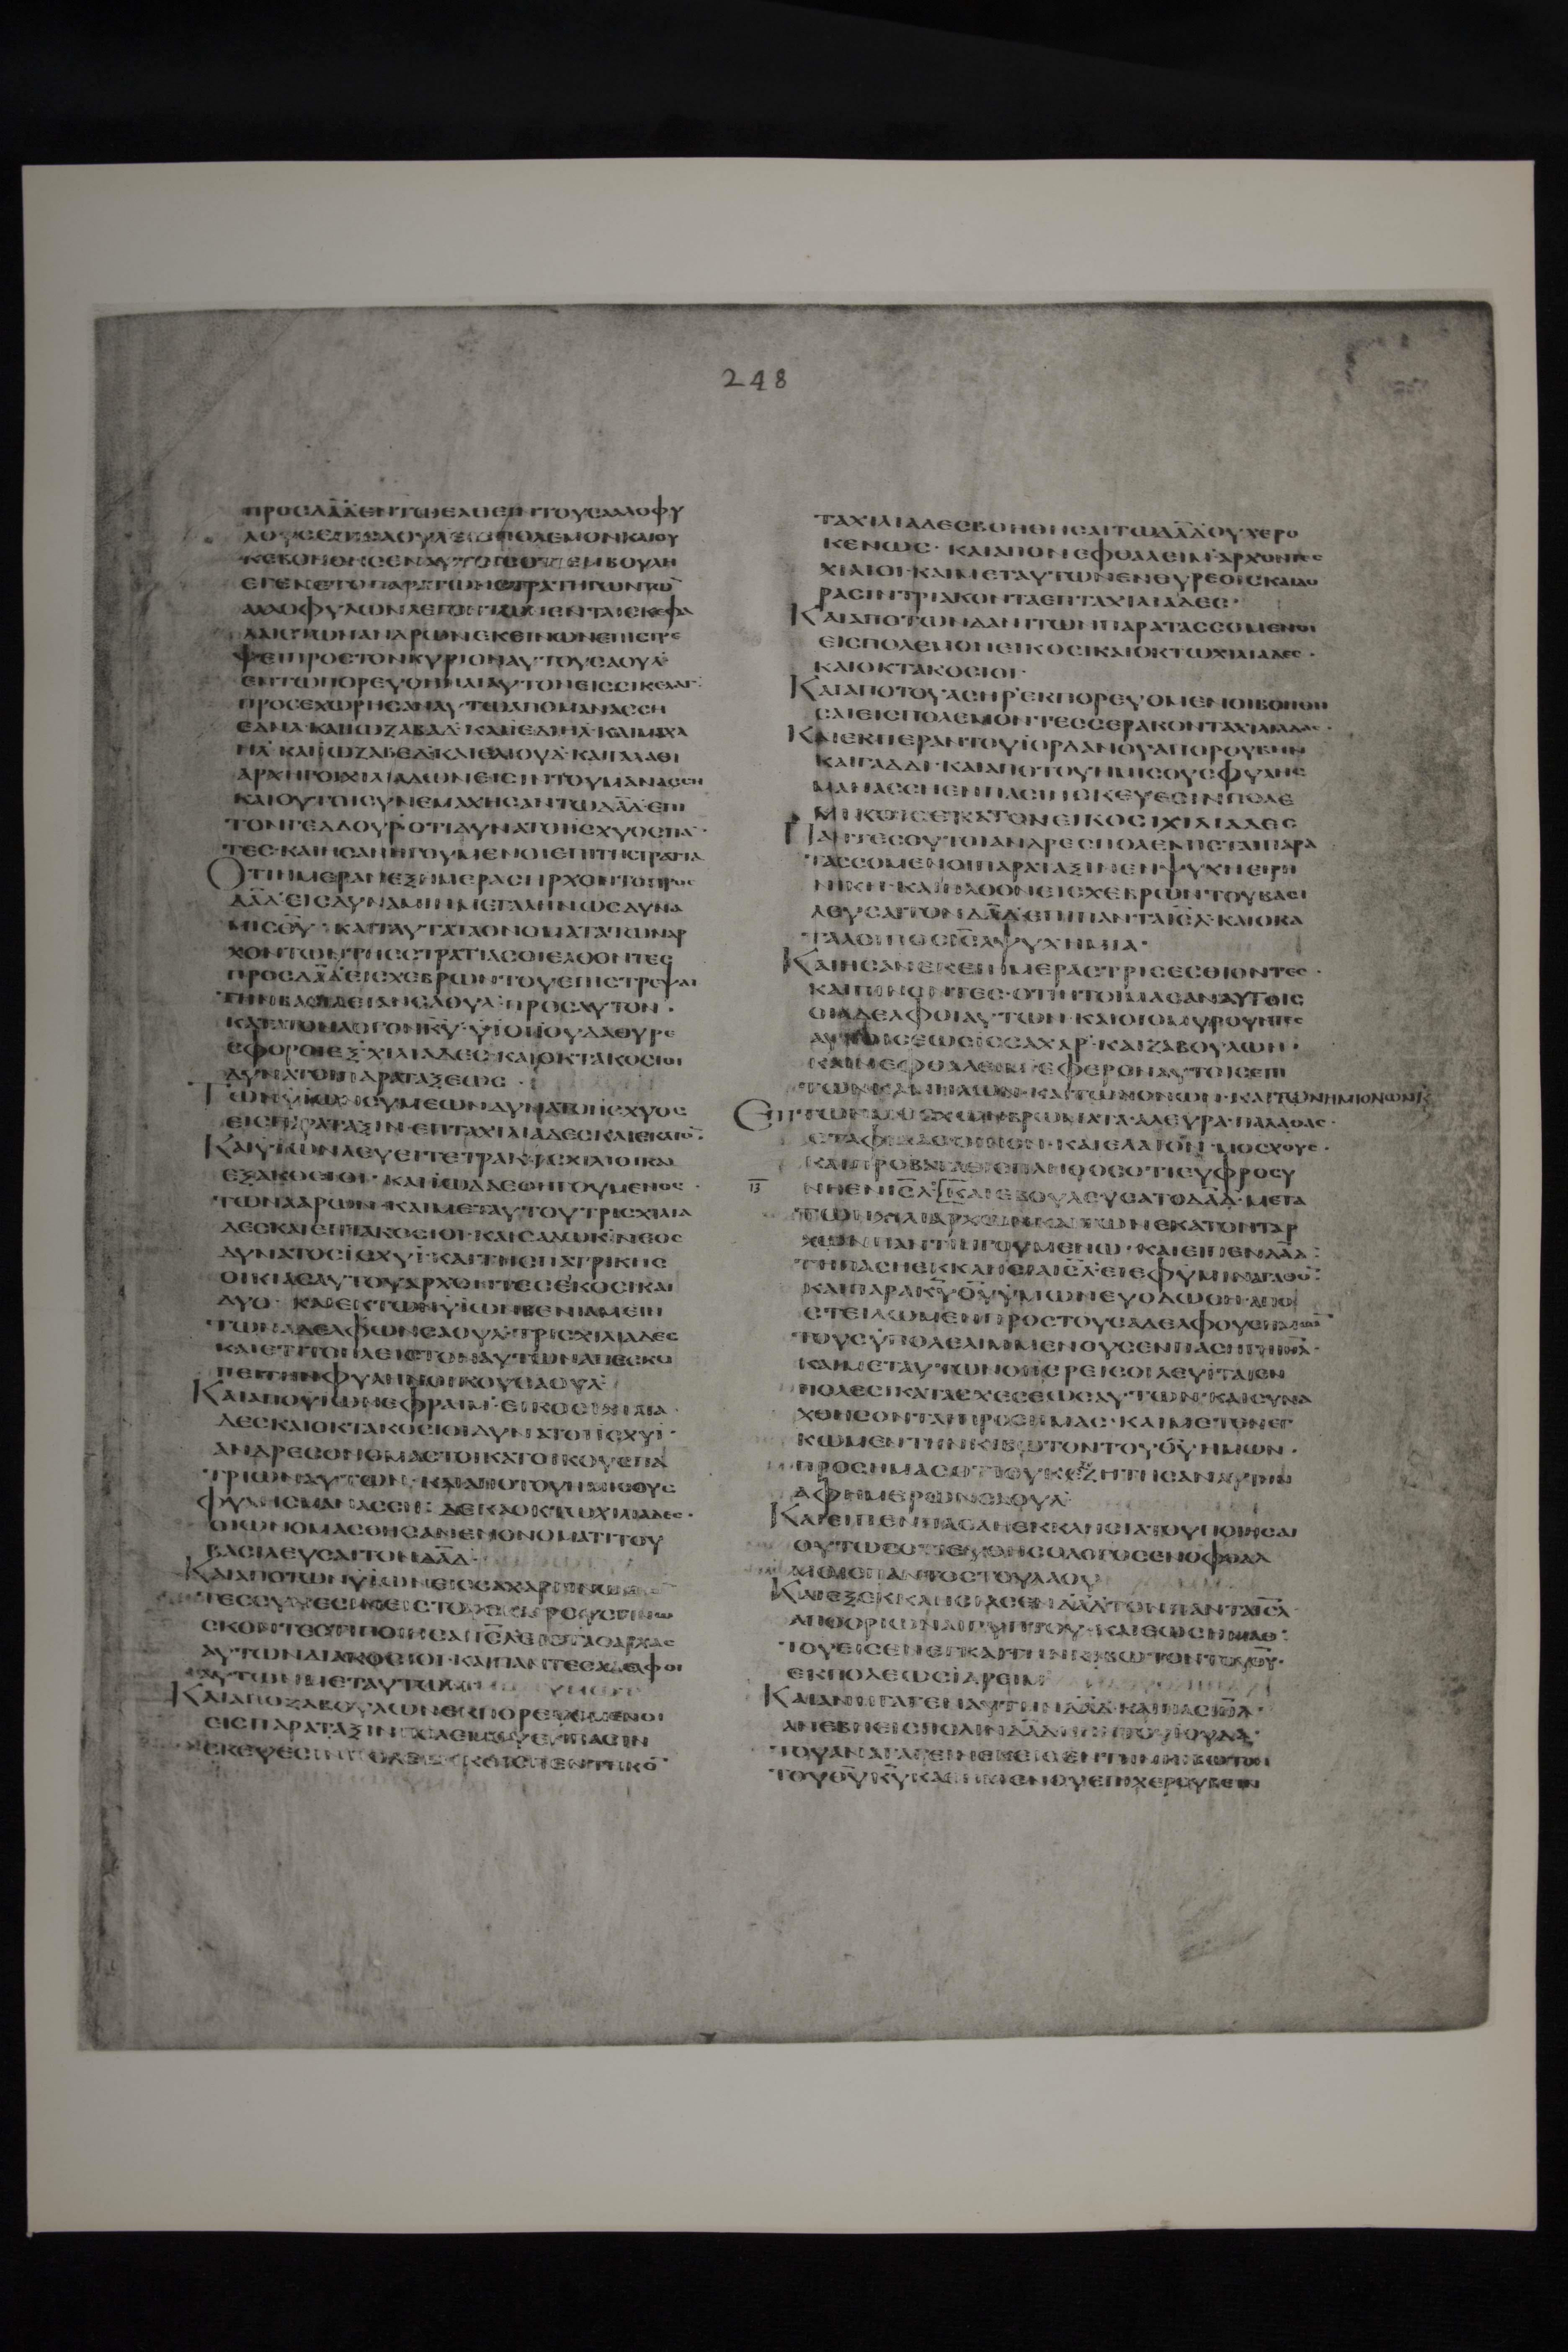 248
ΠΡΟΣΔΑΔ ΕΝ ΤΟΥΣΑΛΛΟΦΥ
ΠΟΛΕΜΟΝΚΑΙΟΥ
ΚΕΒΟΗΘΗΣΕΝΑΥΤΟΙΣΟΤΙΕΝΒΟΥΛΗ
ΕΓΕΝΕΤΟΠΑΡΑΤΩΝΣΤΡΑΤΗΓΩΝΤΩ
ΑΛΛΟΦΥΛΩΝΛΕΓΟΝΤΩΝΕΝΤΑΙΣΚΕΦΑ
ΛΑΙΣΤΩΝΑΝΔΡΩΝΕΚΕΙΝΩΝΕΠΙΣΤΡΕ
ΨΕΙΠΡΟΣΤΟΝΚΥΡΙΟΝΑΥΤΟΥΣΑΟΥΛ·
ΕΝΤΩΠΟΡΕΥΘΗΝΑΙΑΥΤΟΝΕΙΣΣΙΚΕΛΑΓ·
ΠΡΟΣΕΧΩΡΗΣΑΝΑΥΤΩΑΠΟΜΑΝΑΣΣΗ
ΕΔΝΑ·ΚΑΙΙΩΖΑΒΑΔ·ΚΑΙΕΔΙΗΛ·ΚΑΙΜΙΧΑ
ΗΛ·ΚΑΙΙΩΖΑΒΕΔ·ΚΑΙΕΛΙΟΥΔ·ΚΑΙΓΑΛΑΘΙ
ΑΡΧΗΓΟΙΧΙΛΙΑΔΩΝΕΙΣΙΝΤΟΥΜΑΝΑΣΣΗ
ΚΑΙΟΥΤΟΙΣΥΝΕΜΑΧΗΣΑΝΤΩΔΑΔ·ΕΠΙ
ΤΟΝΓΕΔΔΟΥΡ·ΟΤΙΔΥΝΑΤΟΙΙΣΧΥΟΣΠΑ
ΤΕΣ·ΚΑΙΗΣΑΝΗΓΟΥΜΕΝΟΙΕΠΙΤΗΣΤΡΑΤΙΑ
ΟΤΙΗΜΕΡΑΝΕΞΗΜΕΡΑΣΗΡΧΟΝΤΟΠΡΟΣ
ΔΑΔ·ΕΙΣΔΥΝΑΜΙΝΜΕΓΑΛΗΝΩΣΔΥΝΑ
ΜΙΣΘΥ·ΚΑΙΤΑΥΤΑΤΑΟΝΟΜΑΤΑΤΩΝΑΡ
ΧΟΝΤΩΝΤΗΣΣΤΡΑΤΙΑΣΟΙΕΛΘΟΝΤΕΣ
ΠΡΟΣΔΑΔ·ΕΙΣΧΕΒΡΩΝΤΟΥΕΠΙΣΤΡΕΨΑΙ
ΤΗΝΒΑΣΙΛΕΙΑΝΣΑΟΥΛ·ΠΡΟΣΑΥΤΟΝ·
ΚΑΤΑΤΟΝΛΟΓΟΝΚΥ·ΥΙΟΙΙΟΥΔΑΘΥΡΕ
ΕΦΟΡΟΙΕΞΧΙΛΙΑΔΕΣ·ΚΑΙΟΚΤΑΚΟΣΙΟΙ
ΔΥΝΑΤΟΙΠΑΡΑΤΑΞΕΩΣ·
ΤΩΝΥΙΩΝΣΥΜΕΩΝΔΥΝΑΤΟΙΙΣΧΥΟΣ
ΕΙΣΠΑΡΑΤΑΞΙΝ·ΕΠΤΑΧΙΛΙΑΔΕΣΚΑΙΕΚΑΤΟ·
ΚΑΙΥΙΩΝΛΕΥΕΙΤΕΤΡΑΚΙΣΧΙΛΙΟΙΚΑΙ
ΕΞΑΚΟΣΙΟΙ·ΚΑΙΙΩΑΔΑΕΟΗΓΟΥΜΕΝΟΣ·
ΤΩΝΑΑΡΩΝ·ΚΑΙΜΕΤΑΥΤΟΥΤΡΙΣΧΙΛΙΑ
ΔΕΣΚΑΙΕΠΤΑΚΟΣΙΟΙ·ΚΑΙΣΑΔΩΚ·ΝΕΟΣ
ΔΥΝΑΤΟΣΙΣΧΥΙ·ΚΑΙΤΗΣΠΑΤΡΙΚΗΣ
ΟΙΚΙΑΣΑΥΤΟΥΑΡΧΟΝΤΕΣΕΙΚΟΣΙΚΑΙ
ΔΥΟ·ΚΑΙΕΚΤΩΝΥΙΩΝΒΕΝΙΑΜΕΙΝ
ΤΩΝΑΔΕΛΦΩΝΣΑΟΥΛ·ΤΡΙΣΧΙΛΙΑΔΕΣ
ΚΑΙΕΤΙΤΟΠΛΕΙΣΤΟΝΑΥΤΩΝΑΠΕΣΚΟ
ΠΕΙΤΗΝΦΥΛΑΚΗΝΟΙΚΟΥΣΑΟΥΛ·
ΚΑΙΑΠΟΥΙΩΝΕΦΡΑΙΜ·ΕΙΚΟΣΙΧΙΛΙΑ·
ΔΕΣΚΑΙΟΚΤΑΚΟΣΙΟΙΔΥΝΑΤΟΙΙΣΧΥΙ·
ΑΝΔΡΕΣΟΝΟΜΑΣΤΟΙΚΑΤΟΙΚΟΥΣΠΑ
ΤΡΙΩΝΑΥΤΩΝ·ΚΑΙΑΠΟΤΟΥΗΜΙΣΟΥΣ
ΦΥΛΗΣΜΑΝΑΣΣΗ·ΔΕΚΑΟΚΤΩΧΙΛΙΑΔΕΣ·
ΟΙΩΝΟΜΑΣΘΗΣΑΝΕΝΟΝΟΜΑΤΙΤΟΥ
ΒΑΣΙΛΕΥΣΑΙΤΟΝΔΑΔ·
ΚΑΙΑΠΟΤΩΝΥΙΩΝΕΙΣΣΑΧΑΡ
ΣΚΟΝΤΕΣΤΙΠΟΙΗΣΑΙΙΣΛ·ΕΙΣΤΑΣΑΡΧΑΣ
ΑΥΤΩΝΔΙΑΚΟΣΙΟΙ·ΚΑΙΠΑΝΤΕΣΑΔΕΛΦΟΙ
ΑΥΤΩΝΜΕΤΑΥΤΩΝ
ΚΑΙΑΠΟΖΑΒΟΥΛΩΝΕΚΠΟΡΕΥΟΜΕΝΟΙ
ΕΙΣΠΑΡΑΤΑΞΙΝΠΟΛΕΜΟΥΕΝΠΑΣΙΝ
ΣΚΕΥΕΣΙΝΠΟΛΕΜΙΚΟΙΣΠΕΝΤΗΚΟ
ΤΑΧΙΛΙΑΔΕΣΒΟΗΘΗΣΑΙΤΩΔΑΔΟΥΧΕΡΟ
ΚΕΝΩΣ·ΚΑΙΑΠΟΝΕΦΘΑΛΕΙΜ·ΑΡΧΟΝΤΕΣ
ΧΙΛΙΟΙ·ΚΑΙΜΕΤΑΥΤΩΝΕΝΘΥΡΕΟΙΣΚΑΙΔΟ
ΡΑΣΙΝΤΡΙΑΚΟΝΤΑΕΠΤΑΧΙΛΙΑΔΕΣ·
ΚΑΙΑΠΟΤΩΝΔΑΝΙΤΩΝΠΑΡΑΤΑΣΣΟΜΕΝΟΙ
ΕΙΣΠΟΛΕΜΟΝΕΙΚΟΣΙΚΑΙΟΚΤΩΧΙΛΙΑΔΕΣ·
ΚΑΙΟΚΤΑΚΟΣΙΟΙ·
ΚΑΙΑΠΟΤΟΥΑΣΗΡ·ΕΚΠΟΡΕΥΟΜΕΝΟΙΒΟΗΘΗ
ΣΑΙΕΙΣΠΟΛΕΜΟΝΤΕΣΣΕΡΑΚΟΝΤΑΧΙΛΙΑΔΕΣ·
ΚΑΙΕΚΠΕΡΑΝΤΟΥΙΟΡΔΑΝΟΥΑΠΟΡΟΥΒΗΝ
ΚΑΙΓΑΔΔΙ·ΚΑΙΑΠΟΤΟΥΗΜΙΣΟΥΣΦΥΛΗΣ
ΜΑΝΑΣΣΗΕΝΠΑΣΙΝΣΚΕΥΕΣΙΝΠΟΛΕ
ΜΙΚΟΙΣΕΚΑΤΟΝΕΙΚΟΣΙΧΙΛΙΑΔΕΣ
ΠΑΝΤΕΣΟΥΤΟΙΑΝΔΡΕΣΠΟΛΕΜΙΣΤΑΙΠΑΡΑ
ΤΑΣΣΟΜΕΝΟΙΠΑΡΑΤΑΞΙΝΕΝΨΥΧΗΕΙΡΗ
ΝΙΚΗ·ΚΑΙΗΛΘΟΝΕΙΣΧΕΒΡΩΝ·ΤΟΥΒΑΣΙ
ΛΕΥΣΑΙΤΟΝΔΑΔ·ΕΠΙΠΑΝΤΑΙΣΛ·ΚΑΙΟΚΑ
ΤΑΛΟΙΠΟΣΙΣΛΨΥΧΗΜΙΑ·
ΚΑΙΗΣΑΝΕΚΕΙΗΜΕΡΑΣΤΡΙΣΕΣΘΙΟΝΤΕΣ·
ΚΑΙΠΙΝΟΝΤΕΣ·ΟΤΙΗΤΟΙΜΑΣΑΝΑΥΤΟΙΣ
ΟΙΑΔΕΛΦΟΙΑΥΤΩΝ·ΚΑΙΟΙΟΜΟΡΟΥΝΤΕΣ
ΑΥΤΟΙΣΕΩΣΙΣΣΑΧΑΡ·ΚΑΙΖΑΒΟΥΛΩΝ·
ΚΑΙΝΕΦΘΑΛΕΙΜ·ΕΦΕΡΟΝΑΥΤΟΙΣΕΠΙ
ΤΩΝΚΑΜΗΛΩΝ·ΚΑΙΤΩΝΟΝΩΝ·ΚΑΙΤΩΝΗΜΙΟΝΩΝΚ
ΕΠΙΤΩΝΜΟΣΧΩΝΒΡΩΜΑΤΑ·ΑΛΕΥΡΑ·ΠΑΛΑΘΑΣ·
ΣΤΑΦΙΔΑΣΟΙΝΟΝ·ΚΑΙΕΛΑΙΟΝ·ΜΟΣΧΟΥΣ·
ΚΑΙΠΡΟΒΑΤΑΕΙΣΠΛΗΘΟΣΟΤΙΕΥΦΡΟΣΥ
ΝΗΕΝΙΣΛ·ΚΑΙΕΒΟΥΛΕΥΣΑΤΟΔΑΔ·ΜΕΤΑ
ΤΩΝΧΙΛΙΑΡΧΩΝΚΑΙΤΩΝΕΚΑΤΟΝΤΑΡ
ΧΩΝΠΑΝΤΙΗΓΟΥΜΕΝΩ·ΚΑΙΕΙΠΕΝΔΑΔ·
ΤΗΠΑΣΗΕΚΚΛΗΣΙΑΙΣΛ·ΕΙΕΦΥΜΙΝΑΓΑΘΟ·
ΚΑΙΠΑΡΑΚΥΘΥΥΜΩΝΕΥΟΔΩΘΗ·ΑΠΟ
ΣΤΕΙΛΩΜΕΝΠΡΟΣΤΟΥΣΑΔΕΛΦΟΥΣΗΜΩ
ΤΟΥΣΥΠΟΛΕΛΙΜΜΕΝΟΥΣΕΝΠΑΣΗΓΗΙΣΛ·
ΚΑΙΜΕΤΑΥΤΩΝΟΙΙΕΡΕΙΣΟΙΛΕΥΙΤΑΙΕΝ
ΠΟΛΕΣΙΚΑΤΑΣΧΕΣΕΩΣΑΥΤΩΝ·ΚΑΙΣΥΝΑ
ΧΘΗΣΟΝΤΑΙΠΡΟΣΗΜΑΣ·ΚΑΙΜΕΤΕΝΕΓ
ΚΩΜΕΝΤΗΝΚΙΒΩΤΟΝΤΟΥΘΥΗΜΩΝ·
ΠΡΟΣΗΜΑΣΟΤΙΟΥΚΕΖΗΤΗΣΑΝΑΥΤΗΝ
ΑΦΗΜΕΡΩΝΣΑΟΥΛ·
ΚΑΙΕΙΠΕΝΠΑΣΑΗΕΚΚΛΗΣΙΑΤΟΥΠΟΙΗΣΑΙ
ΟΥΤΩΣΟΤΙΕΥΘΗΣΟΛΟΓΟΣΕΝΟΦΘΑΛ
ΜΟΙΣΠΑΝΤΟΣΤΟΥΛΑΟΥ
ΚΑΙΕΞΕΚΚΛΗΣΙΑΣΕΝΔΑΔΤΟΝΠΑΝΤΑΙΣΛ·
ΑΠΟΟΡΙΩΝΑΙΓΥΠΤΟΥ·ΚΑΙΕΩΣΗΜΑΘ·
ΤΟΥΕΙΣΕΝΕΓΚΑΙΤΗΝΚΙΒΩΤΟΝΤΟΥΘΥ·
ΕΚΠΟΛΕΩΣΙΑΡΕΙΜ
ΚΑΙΑΝΗΓΑΓΕΝΑΥΤΗΝΔΑΔ·ΚΑΙΠΑΣΙΣΛ·
ΑΝΕΒΗΕΙΣΠΟΛΙΝΔΑΔ
ΤΟΥΑΝΑΓΑΓΕΙΝΕΚΕΙΘΕΝΤΗΝΚΙΒΩΤΟΝ
ΤΟΥΘΥΚΥΚΑΘΗΜΕΝΟΥΕΠΙΧΕΡΟΥΒΕΙΝ